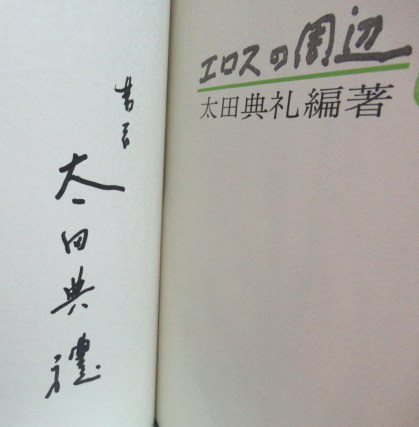 太田典禮
エロスの周辺
太田典礼編著